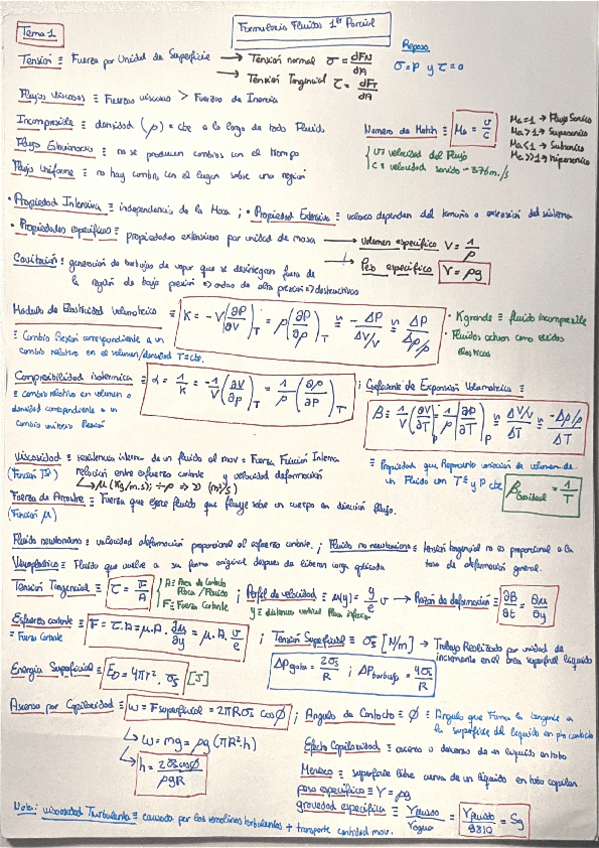 Formulario Fluidos 1er Parcial
Tema 1
Tensión ≡ Fuerza por Unidad de Superficie → Tensión normal σ = dFN/dA
→ Tensión Tangencial τ = dFT/dA
Reposo
σ = P y τ = 0
Flujos viscosos ≡ Fuerzas viscosas > Fuerzas de Inercia
Incompresible ≡ densidad (ρ) = cte a lo largo de todo Fluido
Numero de Match ≡ Ma = v/c
Ma = 1 → Flujo Sonico
Ma > 1 → Supersonico
Ma < 1 → Subsonico
Ma >> 1 → hipersonico
v = velocidad del Flujo
c = velocidad sonido ~ 346 m/s
Flujo Estacionario ≡ no se producen cambios con el tiempo
Flujo Uniforme ≡ no hay cambios con el lugar sobre una región
• Propiedad Intensiva ≡ independiente de la Masa ; • Propiedad Extensiva ≡ valores dependen del tamaño o extensión del sistema
• Propiedades específicas ≡ propiedades extensivas por unidad de masa → volumen específico V = 1/ρ
↳ Peso específico γ = ρg
Cavitación ≡ generación de burbujas de vapor que se desintegran fuera de
la región de baja presión ⇒ ondas de alta presión ⇒ destructivas
Modulo de Elasticidad Volumetrico ≡ K = -V(∂P/∂V)T = ρ(∂P/∂ρ)T ≅ -ΔP/(ΔV/V) ≅ ΔP/(Δρ/ρ)
≡ Cambio Presión correspondiente a un
cambio relativo en el volumen/densidad T=cte.
• K grande ≡ fluido incompresible
• Fluidos actuan como sólidos
elasticos
Compresibilidad isotermica ≡ α = 1/K = -1/V(∂V/∂P)T = 1/ρ(∂ρ/∂P)T ; Coeficiente de Expansión Volumetrica ≡
≡ cambio relativo en volumen o
densidad correspondiente a un
cambio unitario Presión
β = 1/V(∂V/∂T)P = -1/ρ(∂ρ/∂T)P ≅ (ΔV/V)/ΔT ≅ (-Δρ/ρ)/ΔT
Viscosidad ≡ resistencia interna de un fluido al mov = Fuerza Fricción Interna
(Función Tª) relación entre esfuerzo cortante y velocidad deformación
↳ μ (Kg/m.s) ; ÷ρ ⇒ ν (m²/s)
≡ Propiedad que Representa variación de volumen de
un Fluido con Tª y P cte
βGas ideal = 1/T
Fuerza de Arrastre ≡ Fuerza que ejerce fluido que fluye sobre un cuerpo en dirección flujo.
(Función μ)
Fluido newtoniano ≡ velocidad deformación proporcional al esfuerzo cortante. ; Fluido no newtoniano ≡ tensión tangencial no es proporcional a la
tasa de deformación general.
Viscoplastico ≡ Fluido que vuelve a su forma original después de liberar carga aplicada
Tensión Tangencial ≡ τ = F/A
A ≡ Área de Contacto
Placa / Fluido
F ≡ Fuerza Cortante
; Perfil de velocidad ≡ u(y) = y/e v → Razón de deformación ≡ ∂β/∂t = ∂u/∂y
y ≡ distancia vertical Placa inferior
Esfuerzo cortante ≡ F = τ.A = μ.A. ∂u/∂y = μ.A. v/e
≡ Fuerza Cortante
; Tensión Superficial ≡ σs [N/m] → Trabajo Realizado por unidad de
incremento en el área superficial líquido
ΔPgota = 2σs/R ; ΔPburbuja = 4σs/R
Energía Superficial ≡ ED = 4πr². σs [J]
Ascenso por Capilaridad ≡ w = Fsuperficial = 2πRσs cosϕ ; Angulo de Contacto ≡ ϕ ≡ Angulo que Forma la tangente a
la superficie del líquido en pto contacto
↳ w = mg = ρg (πR²h)
↳ h = 2σs cosϕ/ρgR
Efecto Capilaridad ≡ ascenso o descenso de un líquido en tubo
Menisco ≡ superficie libre curva de un líquido en tubo capilar
peso específico ≡ γ = ρg
gravedad específica ≡ γfluido/γagua = γfluido/9810 = Sg
Nota: viscosidad Turbulenta ≡ causada por los remolinos turbulentos + transporte cantidad mov.